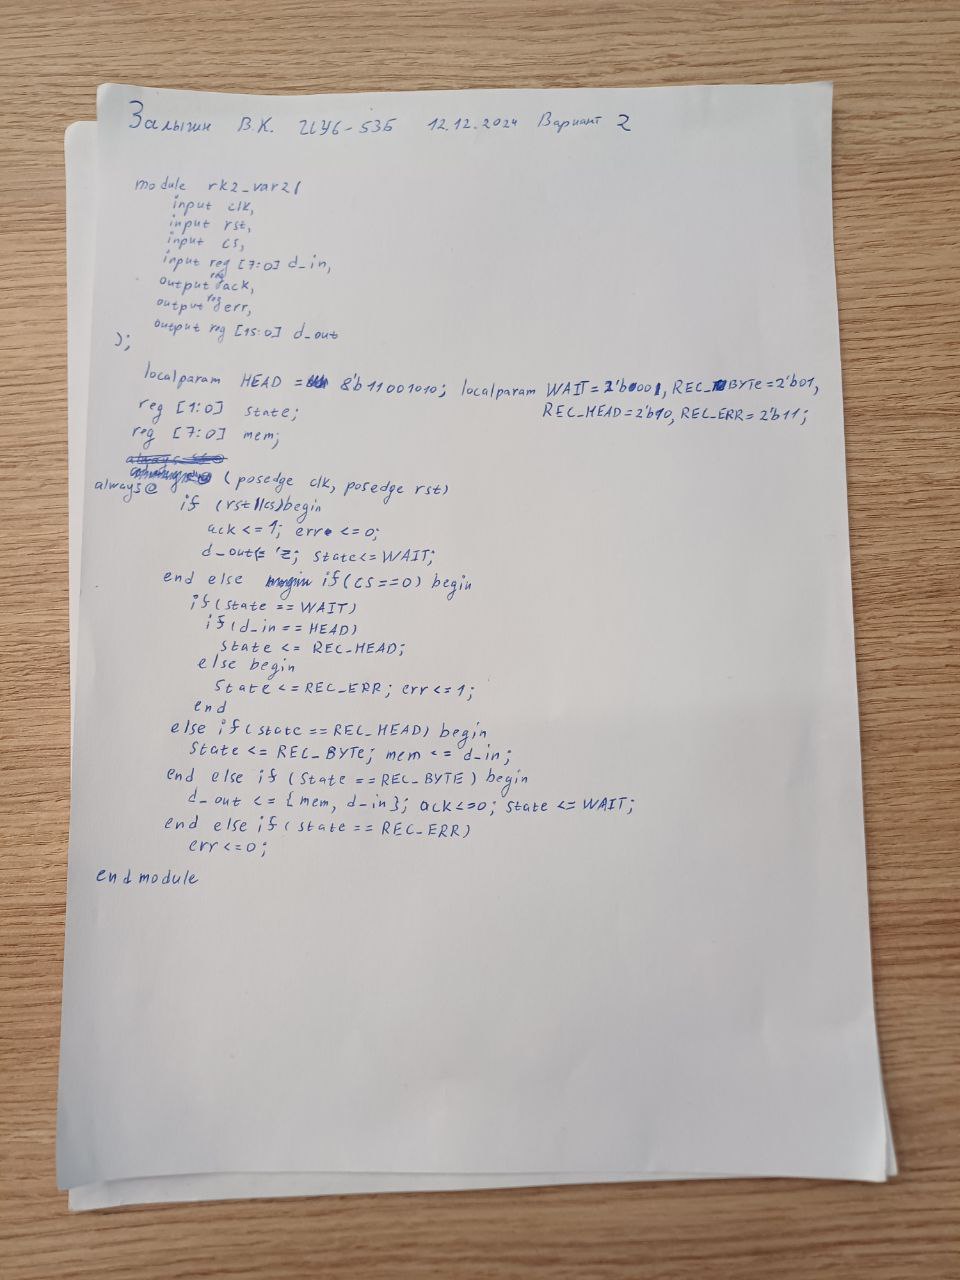 Залыгин В.К. ИУ6-53Б 12.12.2024 Вариант 2
module rk2_var2(
input clk,
input rst,
input cs,
input reg [7:0] d_in,
output reg ack,
output reg err,
output reg [15:0] d_out
);
localparam HEAD = 8'b11001010; localparam WAIT = REC_BYTE=2'b01,
REC_HEAD=2'b10, REC_ERR=2'b11;
reg [1:0] state;
reg [7:0] mem;
always@ (posedge clk, posedge rst)
if (rst||cs)begin
ack <= 1; err <= 0;
d_out<= 'z; state<= WAIT;
end else if(cs==0) begin
if(state == WAIT)
if(d_in == HEAD)
state <= REC_HEAD;
else begin
state <= REC_ERR; err <= 1;
end
else if(state == REC_HEAD) begin
state <= REC_BYTE; mem <= d_in;
end else if (state == REC_BYTE) begin
d_out <= {mem, d_in}; ack<=0; state <= WAIT;
end else if(state == REC_ERR)
err <=0;
endmodule